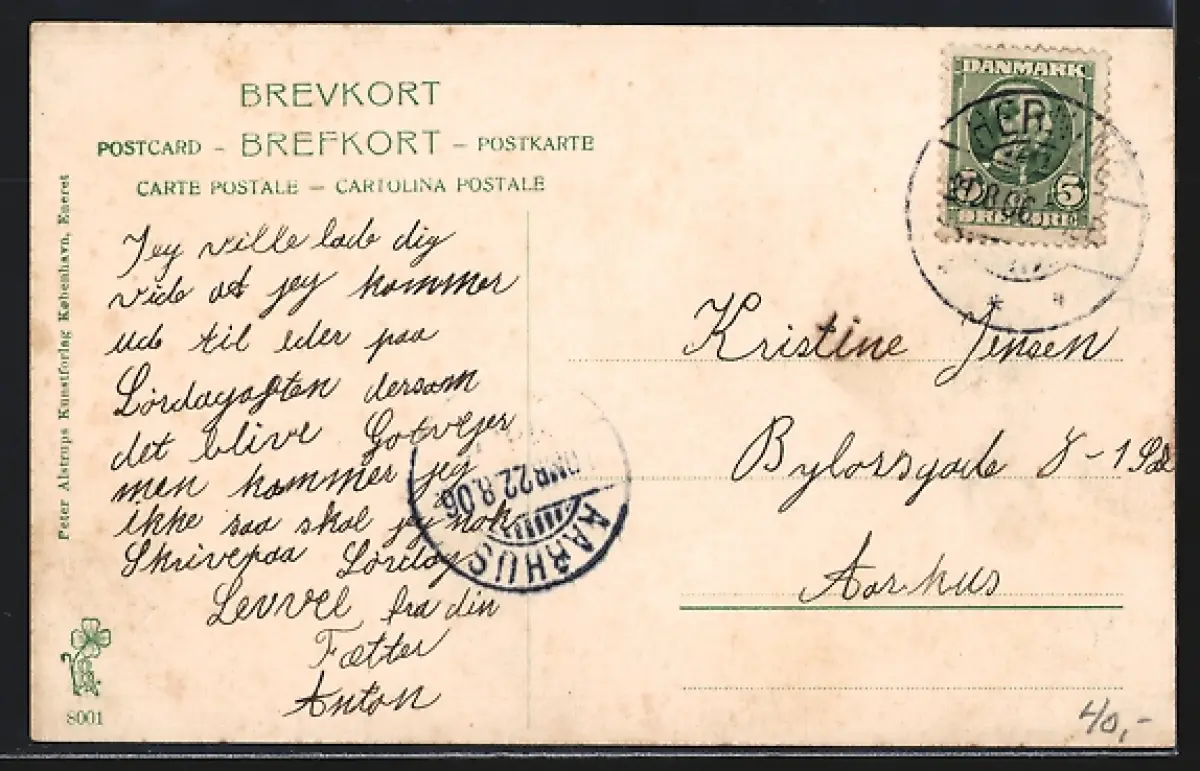 BREVKORT
POSTCARD – BREFKORT – POSTKARTE
CARTE POSTALE – CARTOLINA POSTALE
Peter Alstrups Kunstforlag København, Eneret
8001
DANMARK
5 5
ØRE ØRE
21.8.06
Jeg ville lade dig
vide at jeg kommer
ud til eder paa
Lørdagaften dersom
det blive Gotvejer
men kommer jeg
ikke saa skal jeg nok
Skrivepaa Lørdag
Levvel fra din
Fætter
Anton
22.8.06
AARHUS
Kristine Jensen
8-1 Sal
Aarhus
40,-